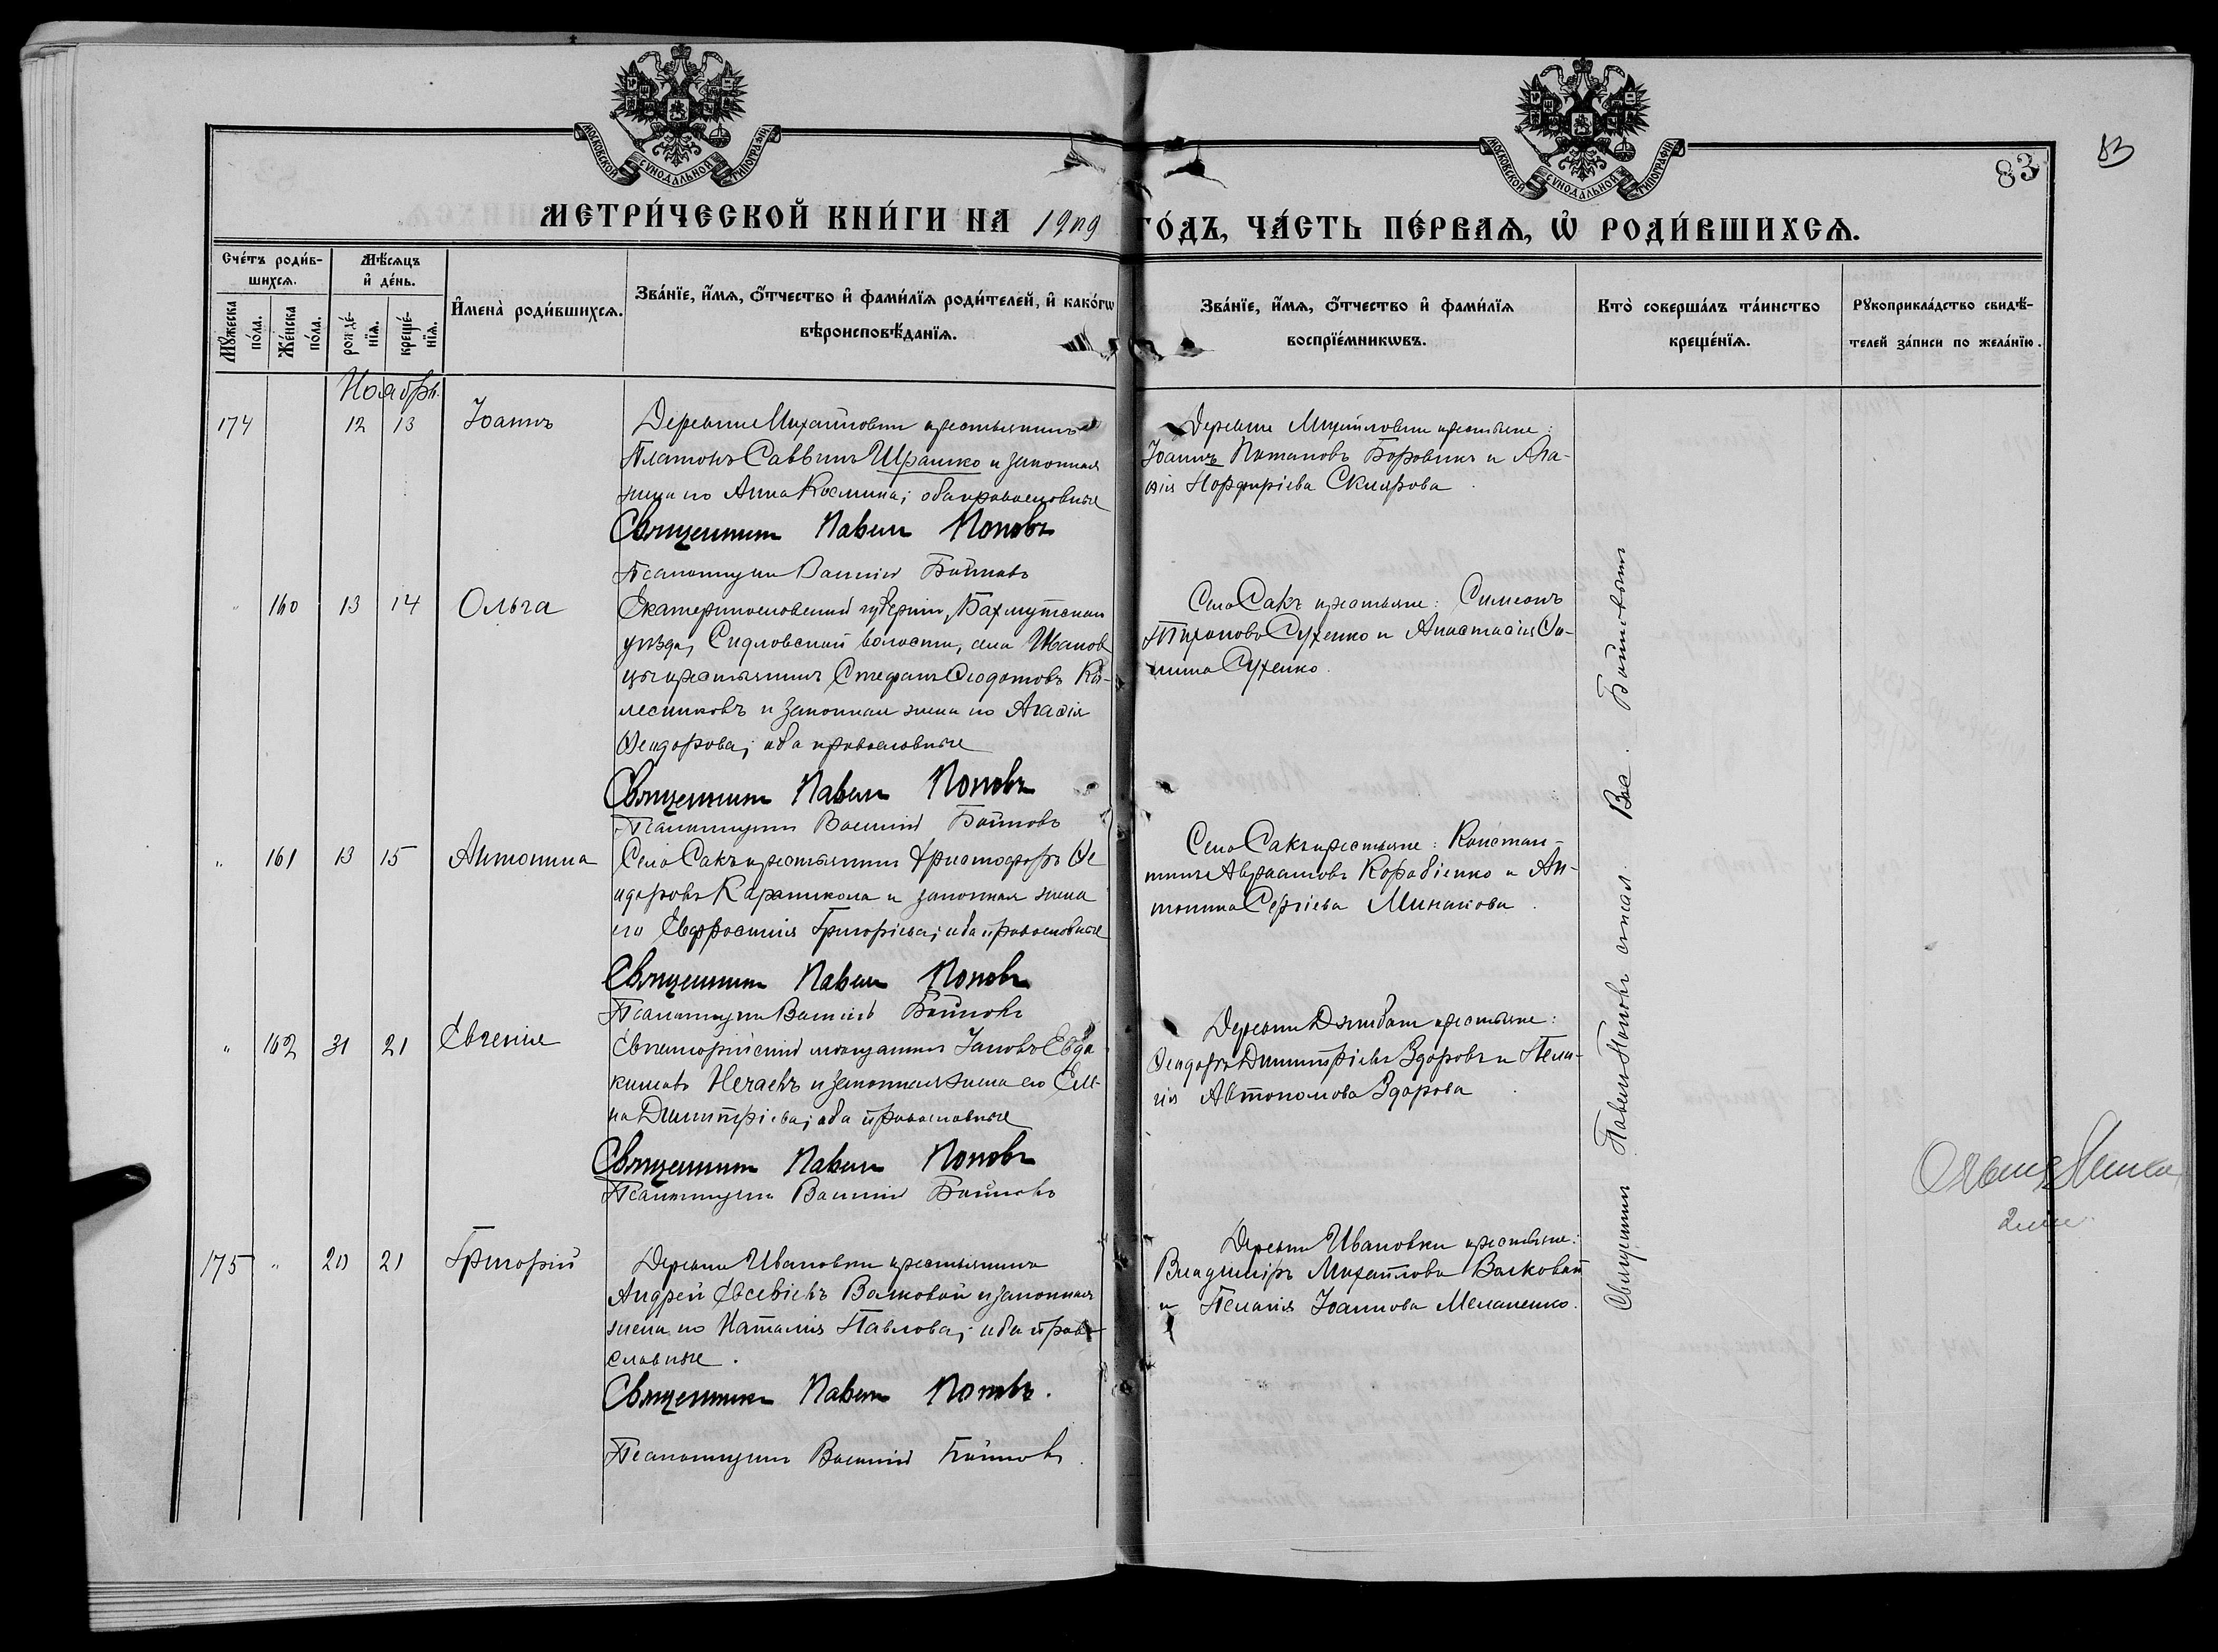 МОСКОВСКОЙ СѴНОДАЛЬНОЙ ТИПОГРАФІИ
МОСКОВСКОЙ СѴНОДАЛЬНОЙ ТИПОГРАФІИ
83
83
МЕТРИ́ЧЕСКОЙ КНИ́ГИ НА 1909 ГО́ДЪ, ЧА́СТЬ ПЕ́РВАѦ, Ѡ҆ РОДИ́ВШИХСѦ.
Сче́тъ роди́в-
шихсѧ.
Мꙋ́жеска по́ла.
Же́нска по́ла.
Мѣ́сѧцъ
и҆ де́нь.
рожде́-
нїѧ.
креще́-
нїѧ.
И҆мена̀ роди́вшихсѧ.
Зва́нїе, и҆́мѧ, ѻ҆́тчество и҆ фами́лїѧ роди́телей, и҆ како́гѡ
вѣроисповѣ́данїѧ.
Зва́нїе, и҆́мѧ, ѻ҆́тчество и҆ фами́лїѧ
воспрїе́мникѡвъ.
Кто̀ соверша́лъ та́инство
креще́нїѧ.
Рꙋкоприкла́дство свидѣ́-
телей за́писи по жела́нїю.
Ноябрь.
174 12 13 Іоаннъ
Деревни Михайловки крестьянинъ
Платонъ Саввинъ Шрамко и законная
жена его Анна Космина; оба православные
Священникъ Павелъ Поповъ
Псаломщикъ Василій Бойковъ
Деревни Михайловки крестьяне:
Іоаннъ Потаповъ Боровикъ и Ага-
ѳія Порфиріева Склярова.
" 160 13 14 Ольга
Екатеринославской губерніи, Бахмутскаго
уѣзда, волости, села
крестьянинъ Стефанъ Ѳеодотовъ Ко-
лесниковъ и законная жена его Агаѳія
Ѳеодорова; оба православные
Священникъ Павелъ Поповъ
Псаломщикъ Василій Бойковъ
Села Сакъ крестьяне: Симеонъ
Тихоновъ Сухенко и Анастасія Ѳо-
мина Сухенко.
" 161 13 15 Антонина
Села Сакъ крестьянинъ Христофоръ Ѳе-
одоровъ и законная жена
его Евфросинія Григоріева; оба православные
Священникъ Павелъ Поповъ
Псаломщикъ Василій Бойковъ
Села Сакъ крестьяне: Констан-
тинъ Авраамовъ Корабіенко и Ан-
тонина Сергіева Минакова.
" 162 31 21 Евгенія
Евпаторійскій мѣщанинъ Іаковъ Евдо-
кимовъ Нечаевъ и законная жена его Еле-
на Димитріева; оба православные
Священникъ Павелъ Поповъ
Псаломщикъ Василій Бойковъ
Деревни крестьяне:
Ѳеодоръ Димитріевъ Здоровъ и Пела-
гія Автономова Здорова.
175 " 20 21 Григорій
Деревни Ивановки крестьянинъ
Андрей Евсевіевъ Волковой и законная
жена его Наталія Павлова; оба право-
славные.
Священникъ Павелъ Поповъ.
Псаломщикъ Василій Бойковъ.
Деревни Ивановки крестьяне:
Владиміръ Михайловъ Волковой
и Пелагія Іоаннова Мелашенко.
Священникъ Павелъ Поповъ